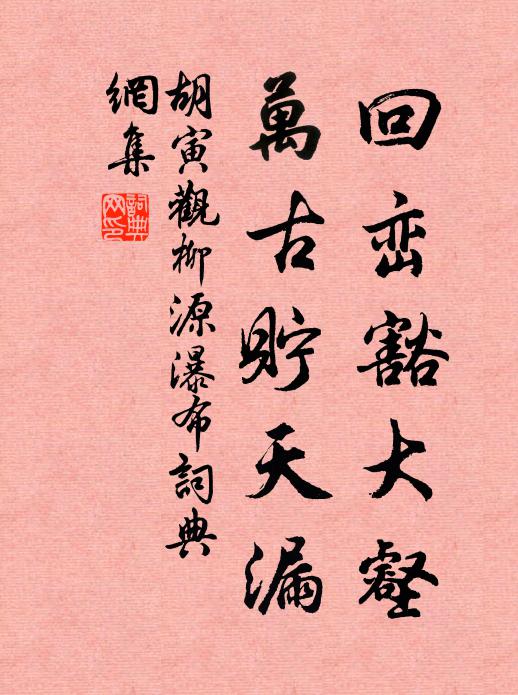 回峦豁大壑
萬古貯天漏
胡寅觀柳源瀑布詞典
網集
詞典
网印